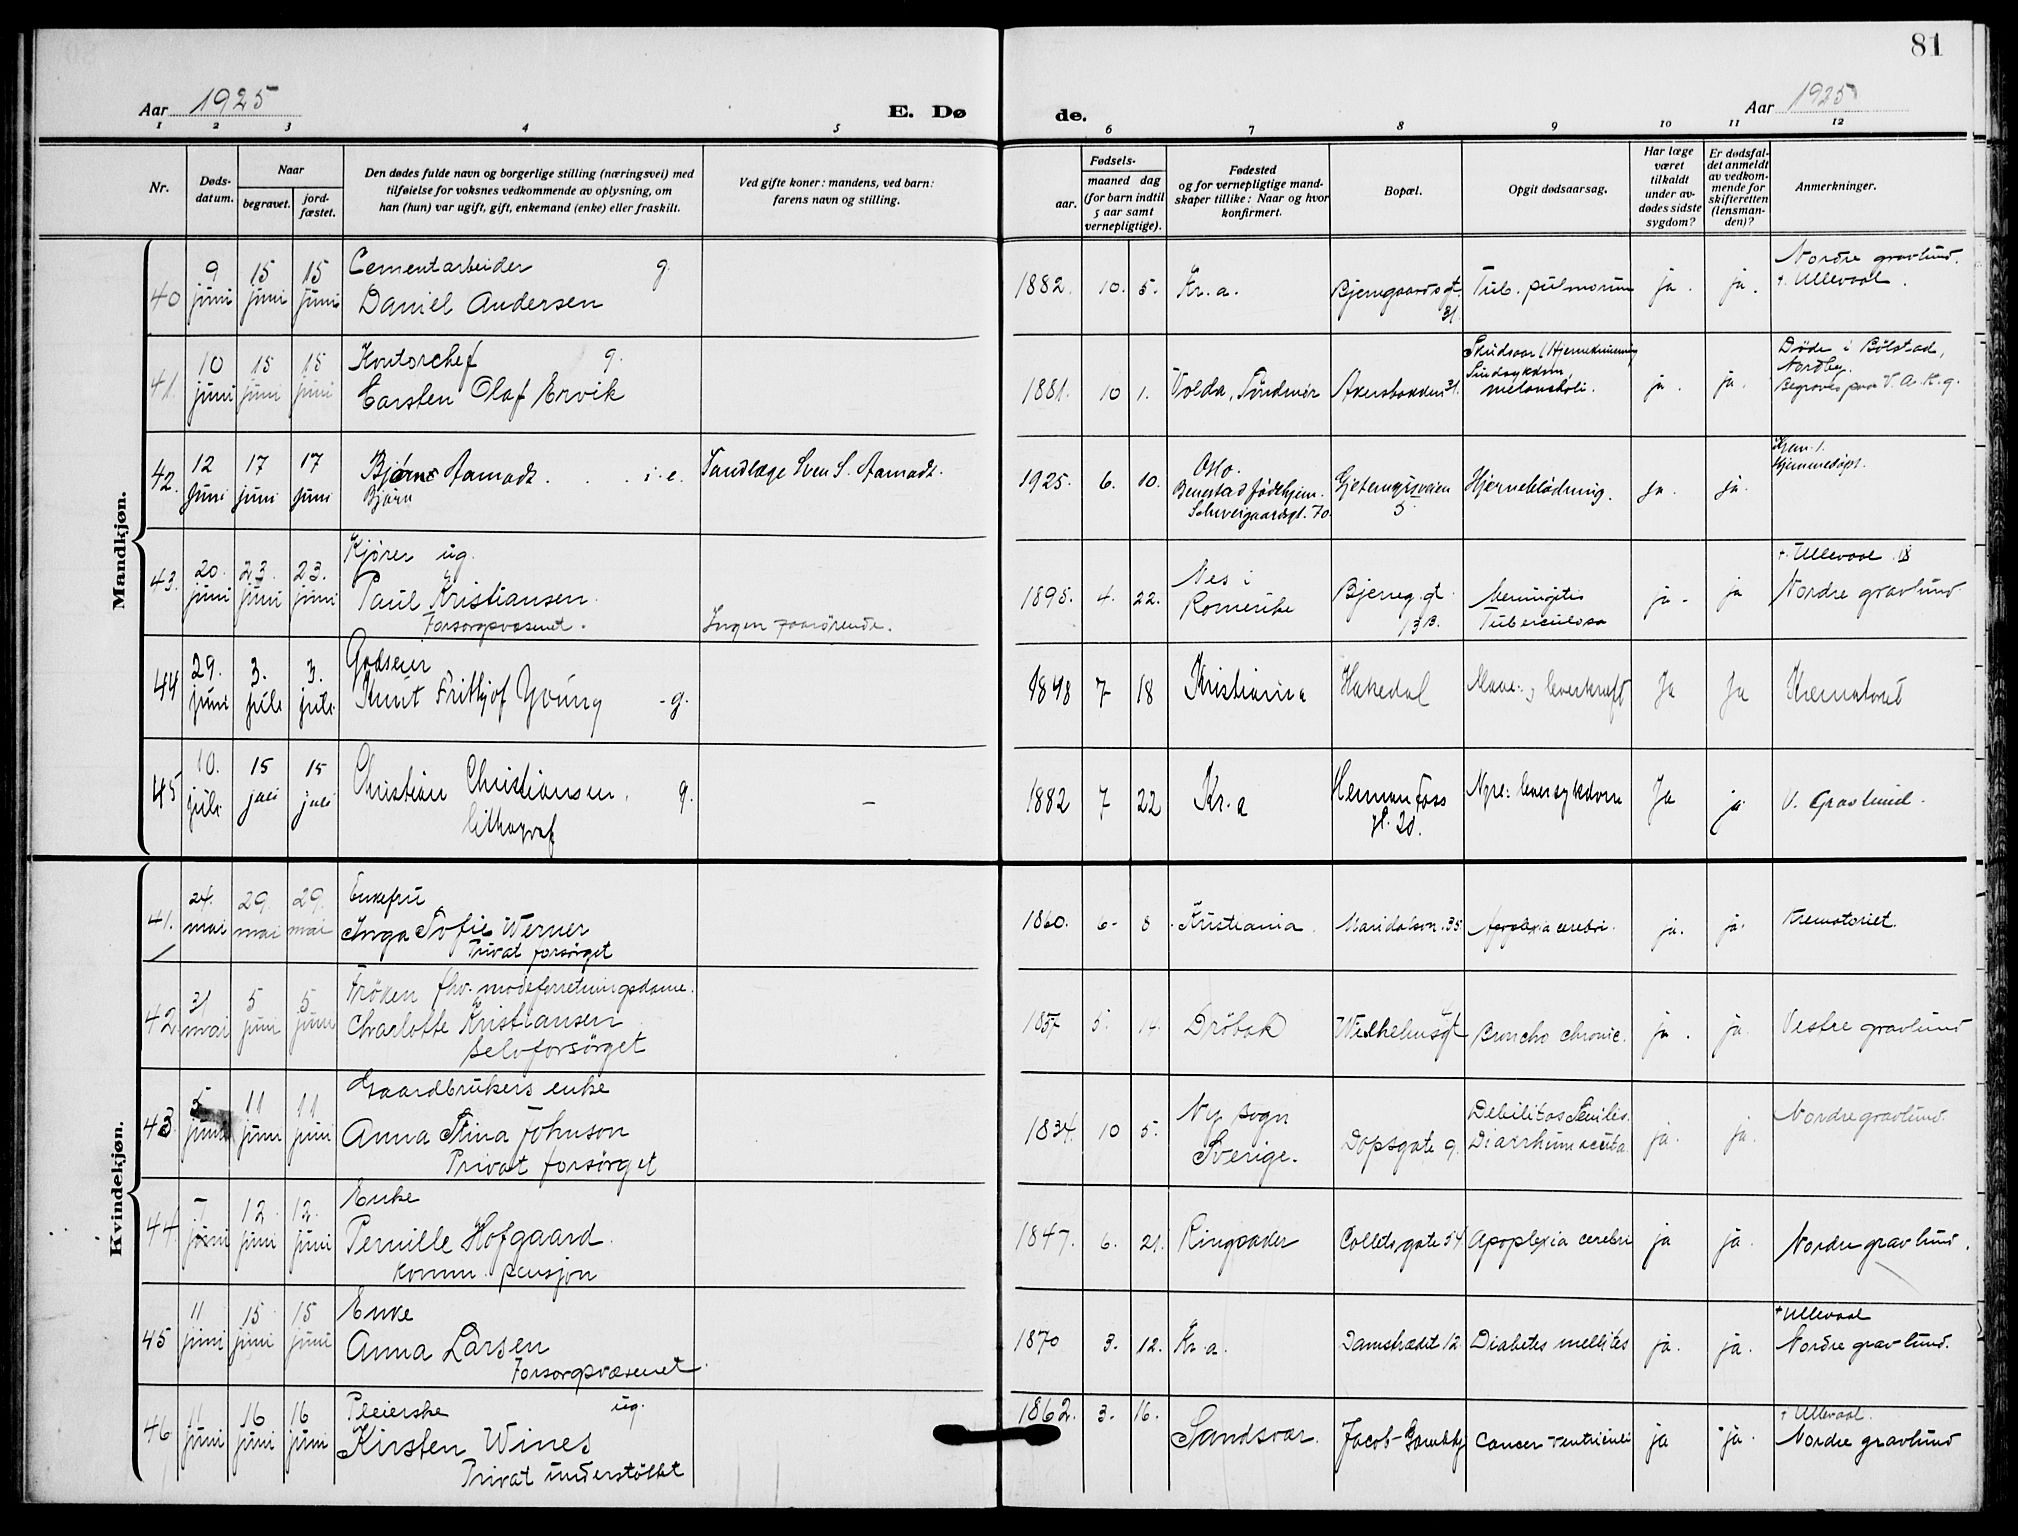 81
Aar 1925
E. Dø
de.
Aar 1925
1 2 3 4 5 6 7 8 9 10 11 12
Nr.
Døds-
datum.
Naar
begravet.
jord-
fæstet.
Den dødes fulde navn og borgerlige stilling (næringsvei) med
tilføielse for voksnes vedkommende av oplysning, om
han (hun) var ugift, gift, enkemand (enke) eller fraskilt.
Ved gifte koner: mandens, ved barn:
farens navn og stilling.
Fødsels-
aar.
maaned dag
(for barn indtil
5 aar samt
vernepligtige).
Fødested
og for vernepligtige mand-
skaper tillike: Naar og hvor
konfirmert.
Bopæl.
Opgit dødsaarsag.
Har læge
været
tilkaldt
under av-
dødes sidste
sygdom?
Er dødsfal-
det anmeldt
av vedkom-
mende for
skifteretten
(lensman-
den)?
Anmerkninger.
Mandkjøn.
40 9 juni 15 juni 15 juni
Cementarbeider g.
Daniel Andersen
1882. 10. 5. Kr.a. Bjerregaardsgt. 31 Tub. pulmorum ja. ja.
Nordre gravlund.
† Ullevaal.
41. 10 juni 15 juni 15 juni
Kontorchef g.
Carsten Olaf Ervik
1881. 10 1. Volda, Søndmør Akersbakken 31.
Skudsaar (Hjerneknusning
Sindsykdom,
melancholi.
ja. ja.
Døde i Bølstad,
Nordby.
Begraves paa V. A. K. g.
42. 12 juni 17 juni 17 juni
Bjørne Aamodt. i. e.
Bjørn
Tandlæge Sven S. Aamodt.
1925. 6. 10.
Oslo.
Benestad fødehjem.
Schweigaardsgt. 70.
Gjetemyrsveien 5 Hjerneblødning. ja. ja.
Hjemmedøpt.
43. 20. juni 23. juni 23. juni
Kjører ug.
Paul Kristiansen.
Forsorgsvæsenet.
Ingen paarørende.
1895. 4. 22.
Nes i
Romerike
Bjerreg.gt. 13 B.
Meningitis
Tuberculosa
ja. ja
† Ullevaal 18
Nordre gravlund.
44 29. juni 3. juli 3. juli
Godseier
Knut Frithjof Young - g.
1848 7 18 Kristiania Hakedal Mave- og leverkræft Ja Ja Krematoriet
45 10. juli 15 juli 15 juli
Christian Christiansen. g.
lithograf
1882 7 22 Kr.a Herman Foss gt. 20. Nyre- leversykdom Ja ja V. Gravlund.
Kvindekjøn.
41. 24. mai 29. mai 29. mai
Enkefru
Inga Sofie Werner
Privat forsørget
1860. 6- 8 Kristiania. Maridalsvn. 35 Apoplexia cerebri. ja. ja. Krematoriet.
42. 31 mai 5 juni 5 juni
Frøken fhv. modeforretningsdame.
Charlotte Kristiansen
selvforsørget
1857 5. 14. Drøbak Wilhelmsgt. Broncho chronic. ja. ja. Vestre gravlund
43. 5 juni 11 juni 11 juni
Gaardbrukers enke
Anna Stina Johnson
Privat forsørget
1834. 10 5.
Ny sogn
Sverige.
Dopsgate 9.
Debilitas Senilis.
Diarrhum acuta.
ja. ja. Nordre gravlund.
44. 7 juni 12 juni 12. juni
Enke
Pernille Hofgaard.
komm. pensjon
1847. 6. 21. Ringsaker Colletsgate 54 Apoplexia cerebri ja ja. Nordre gravlund.
45 11 juni 15 juni 15 juni
Enke
Anna Larsen
Forsorgsvæsenet.
1870 3. 12. Kr.a. Damstrædet 12. Diabetes mellites ja. ja.
† Ullevaal
Nordre gravlund.
46 11 juni 16 juni 16 juni
Pleierske ug.
Kirsten Wines
Privat understøttet
1862. 3. 16. Sandsvær. Cancer ventriculi ja ja.
† Ullevaal.
Nordre gravlund